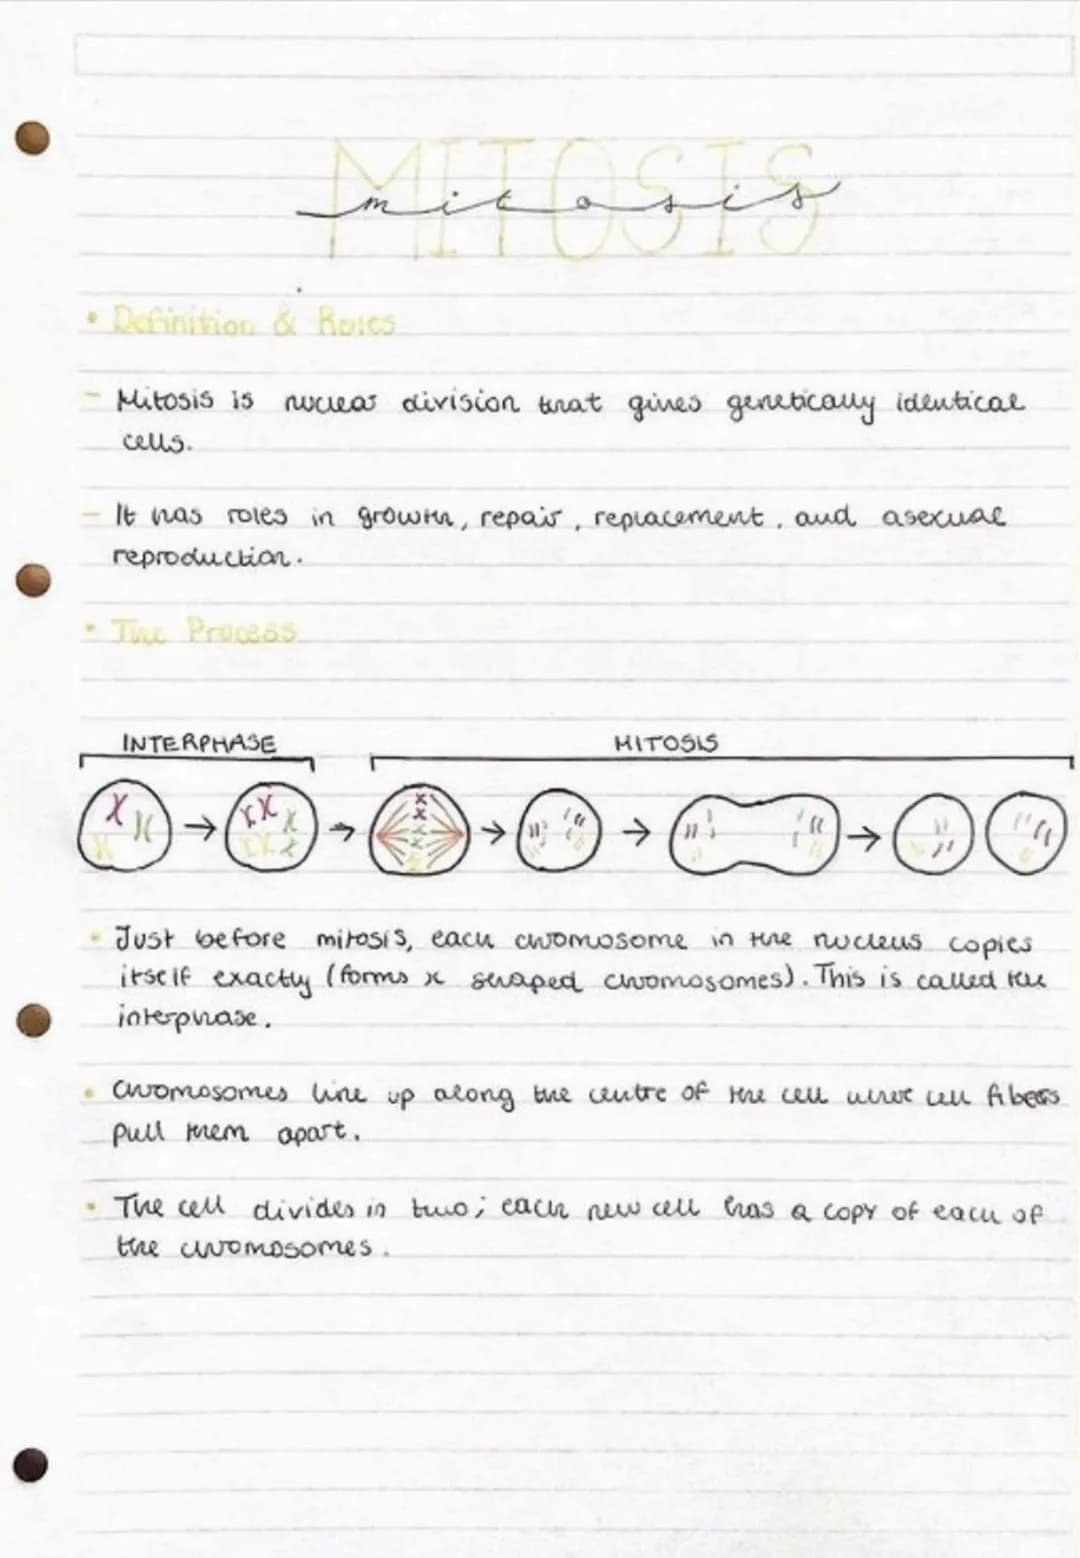 MITOSIS
mitosis
• Definition & Roles
- Mitosis is nuclear division that gives genetically identical
cells.
- It has roles in growth, repair, replacement, and asexual
reproduction.
• The Process
INTERPHASE MITOSIS
• Just before mitosis, each chromosome in the nucleus copies
itself exactly (forms x shaped chromosomes). This is called the
interphase.
• Chromosomes line up along the centre of the cell where cell fibers
pull them apart.
• The cell divides in two; each new cell has a copy of each of
the chromosomes.